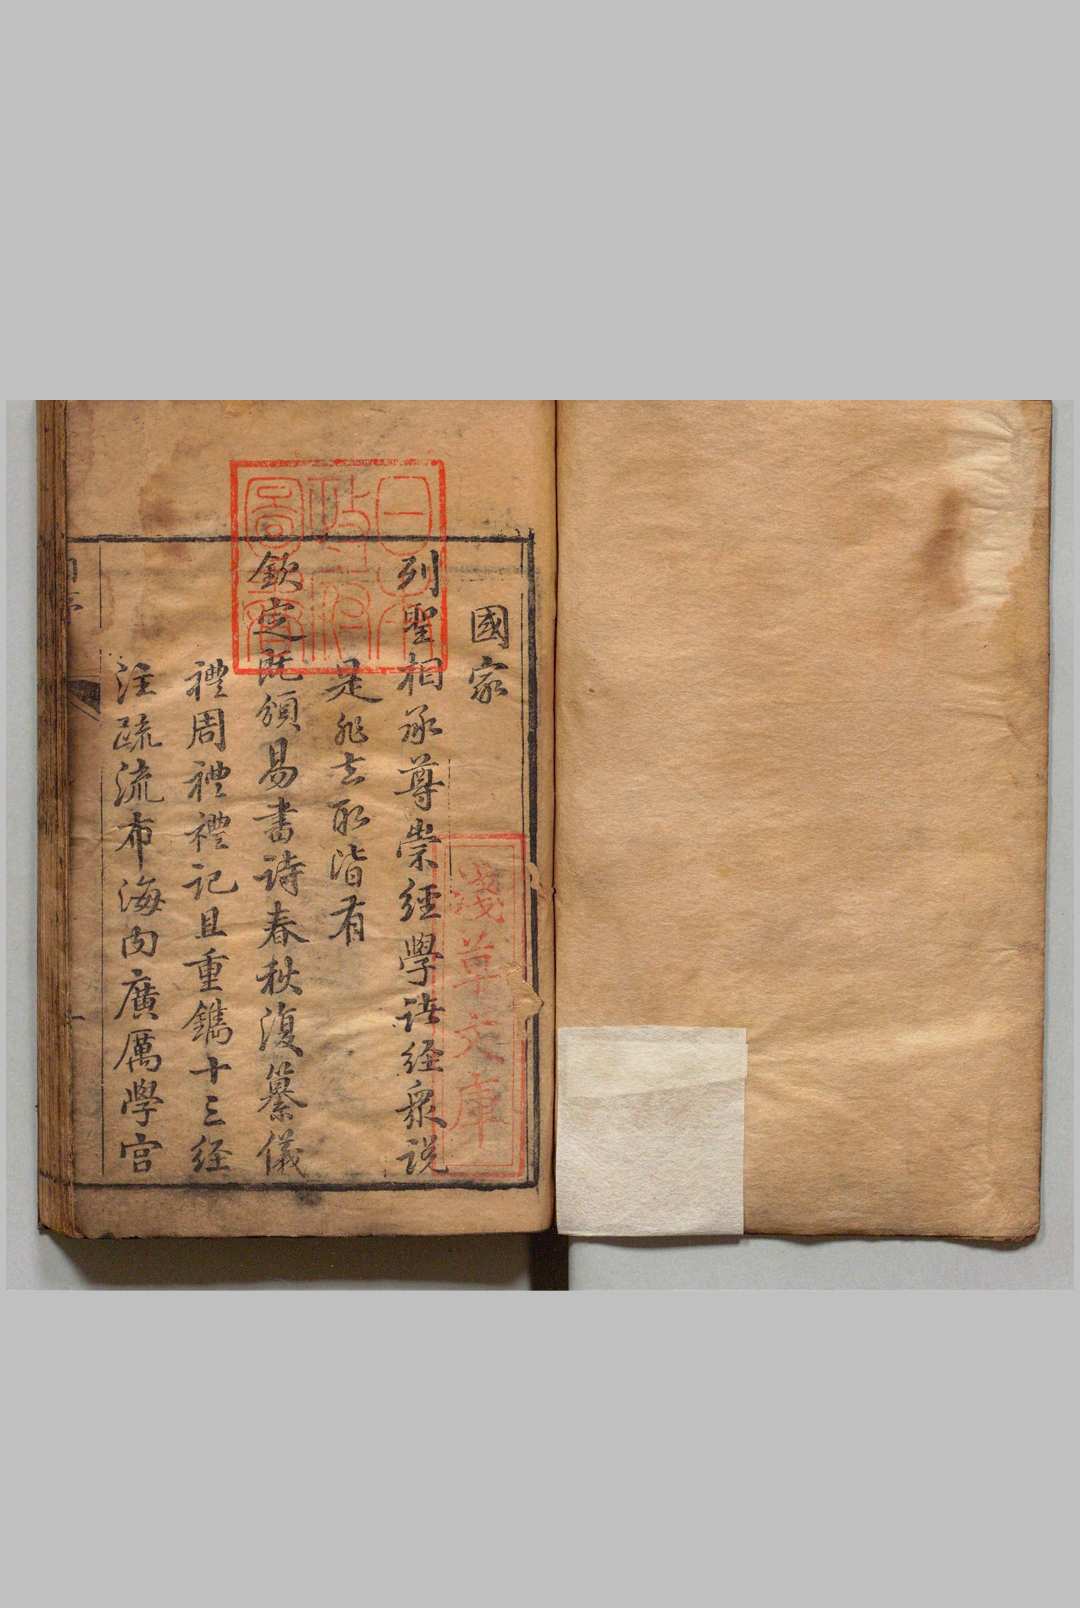 國家
列聖相承尊崇經學諸經眾說
是非去取皆有
欽定既頒易書詩春秋復纂儀
禮周禮禮記且重鐫十三經
注疏流布海內廣厲學宮
日本政府圖書
淺草文庫